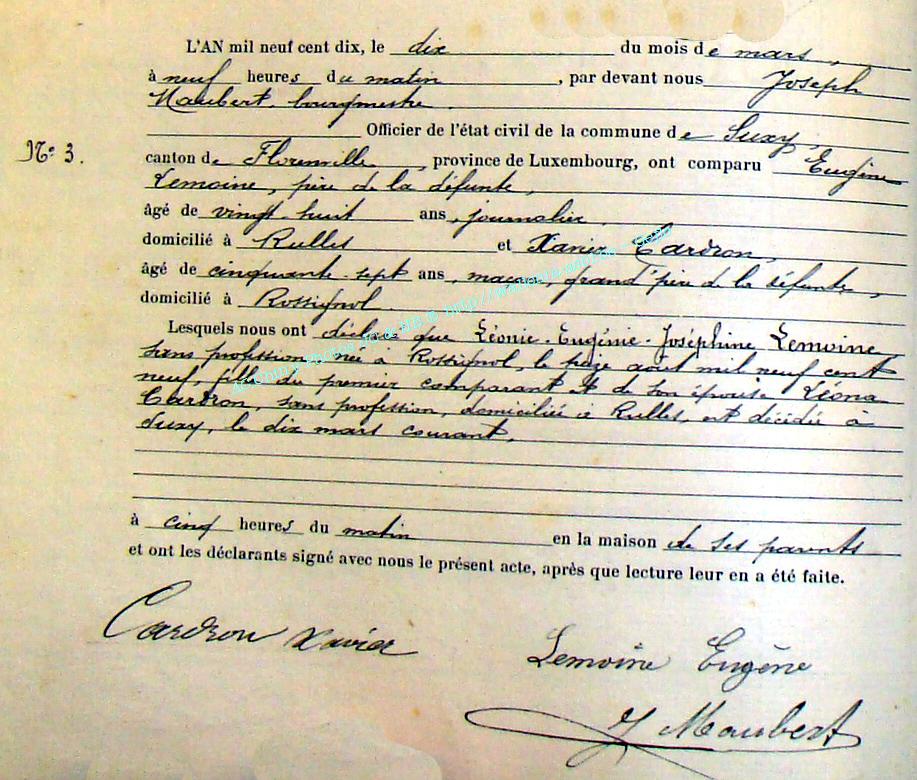 L'AN mil neuf cent dix, le dix du mois de mars,
à neuf heures du matin, par devant nous Joseph
Maubert, bourgmestre.
Officier de l'état civil de la commune de Suxy,
N° 3.
canton de Florenville, province de Luxembourg, ont comparu Eugène
Lemoine, père de la défunte,
âgé de vingt-huit ans, journalier
domicilié à Rulles et Xavier Cardron,
âgé de cinquante-sept ans, maçon, grand'père de la défunte,
domicilié à Rossignol.
Lesquels nous ont déclaré que Léonie-Eugénie-Joséphine Lemoine
sans profession née à Rossignol, le août mil neuf cent
neuf, fille du premier comparant et de son épouse Léona
Cardron, sans profession, domiciliée à Rulles, est décédée à
Suxy, le dix mars courant,
à cinq heures du matin en la maison de ses parents
et ont les déclarants signé avec nous le présent acte, après que lecture leur en a été faite.
Cardron Xavier
Lemoine Eugène
J Maubert